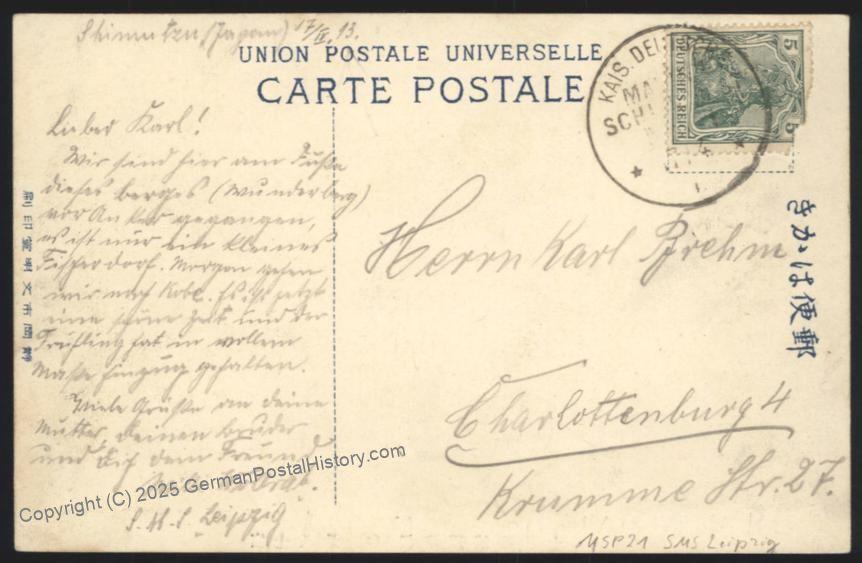 Shimutzu (Japan) 17/IV. 13.
UNION POSTALE UNIVERSELLE
CARTE POSTALE
KAIS. DEUTSCHE
MA
SCH
5
DEUTSCHES REICH
5
Lieber Karl!
Wir sind hier am Fuße
dieses berges (Wunderberg)
vor Anker gegangen,
es ist nur ein kleines
Fischerdorf. Morgen gehen
wir nach Kobe. Es ist jetzt
eine schöne Zeit und der
Frühling hat in vollem
Maße Einzug gehalten.
Viele Grüße an deine
Mutter, deinen bruder
und dich dein Freund
S.M.S. Leipzig
Herrn Karl Brehm
Charlottenburg 4
Krumme Str. 27.
きかは便郵
刷印寳明文市岡静
MSP21 SMS Leipzig
Copyright (C) 2025 GermanPostalHistory.com